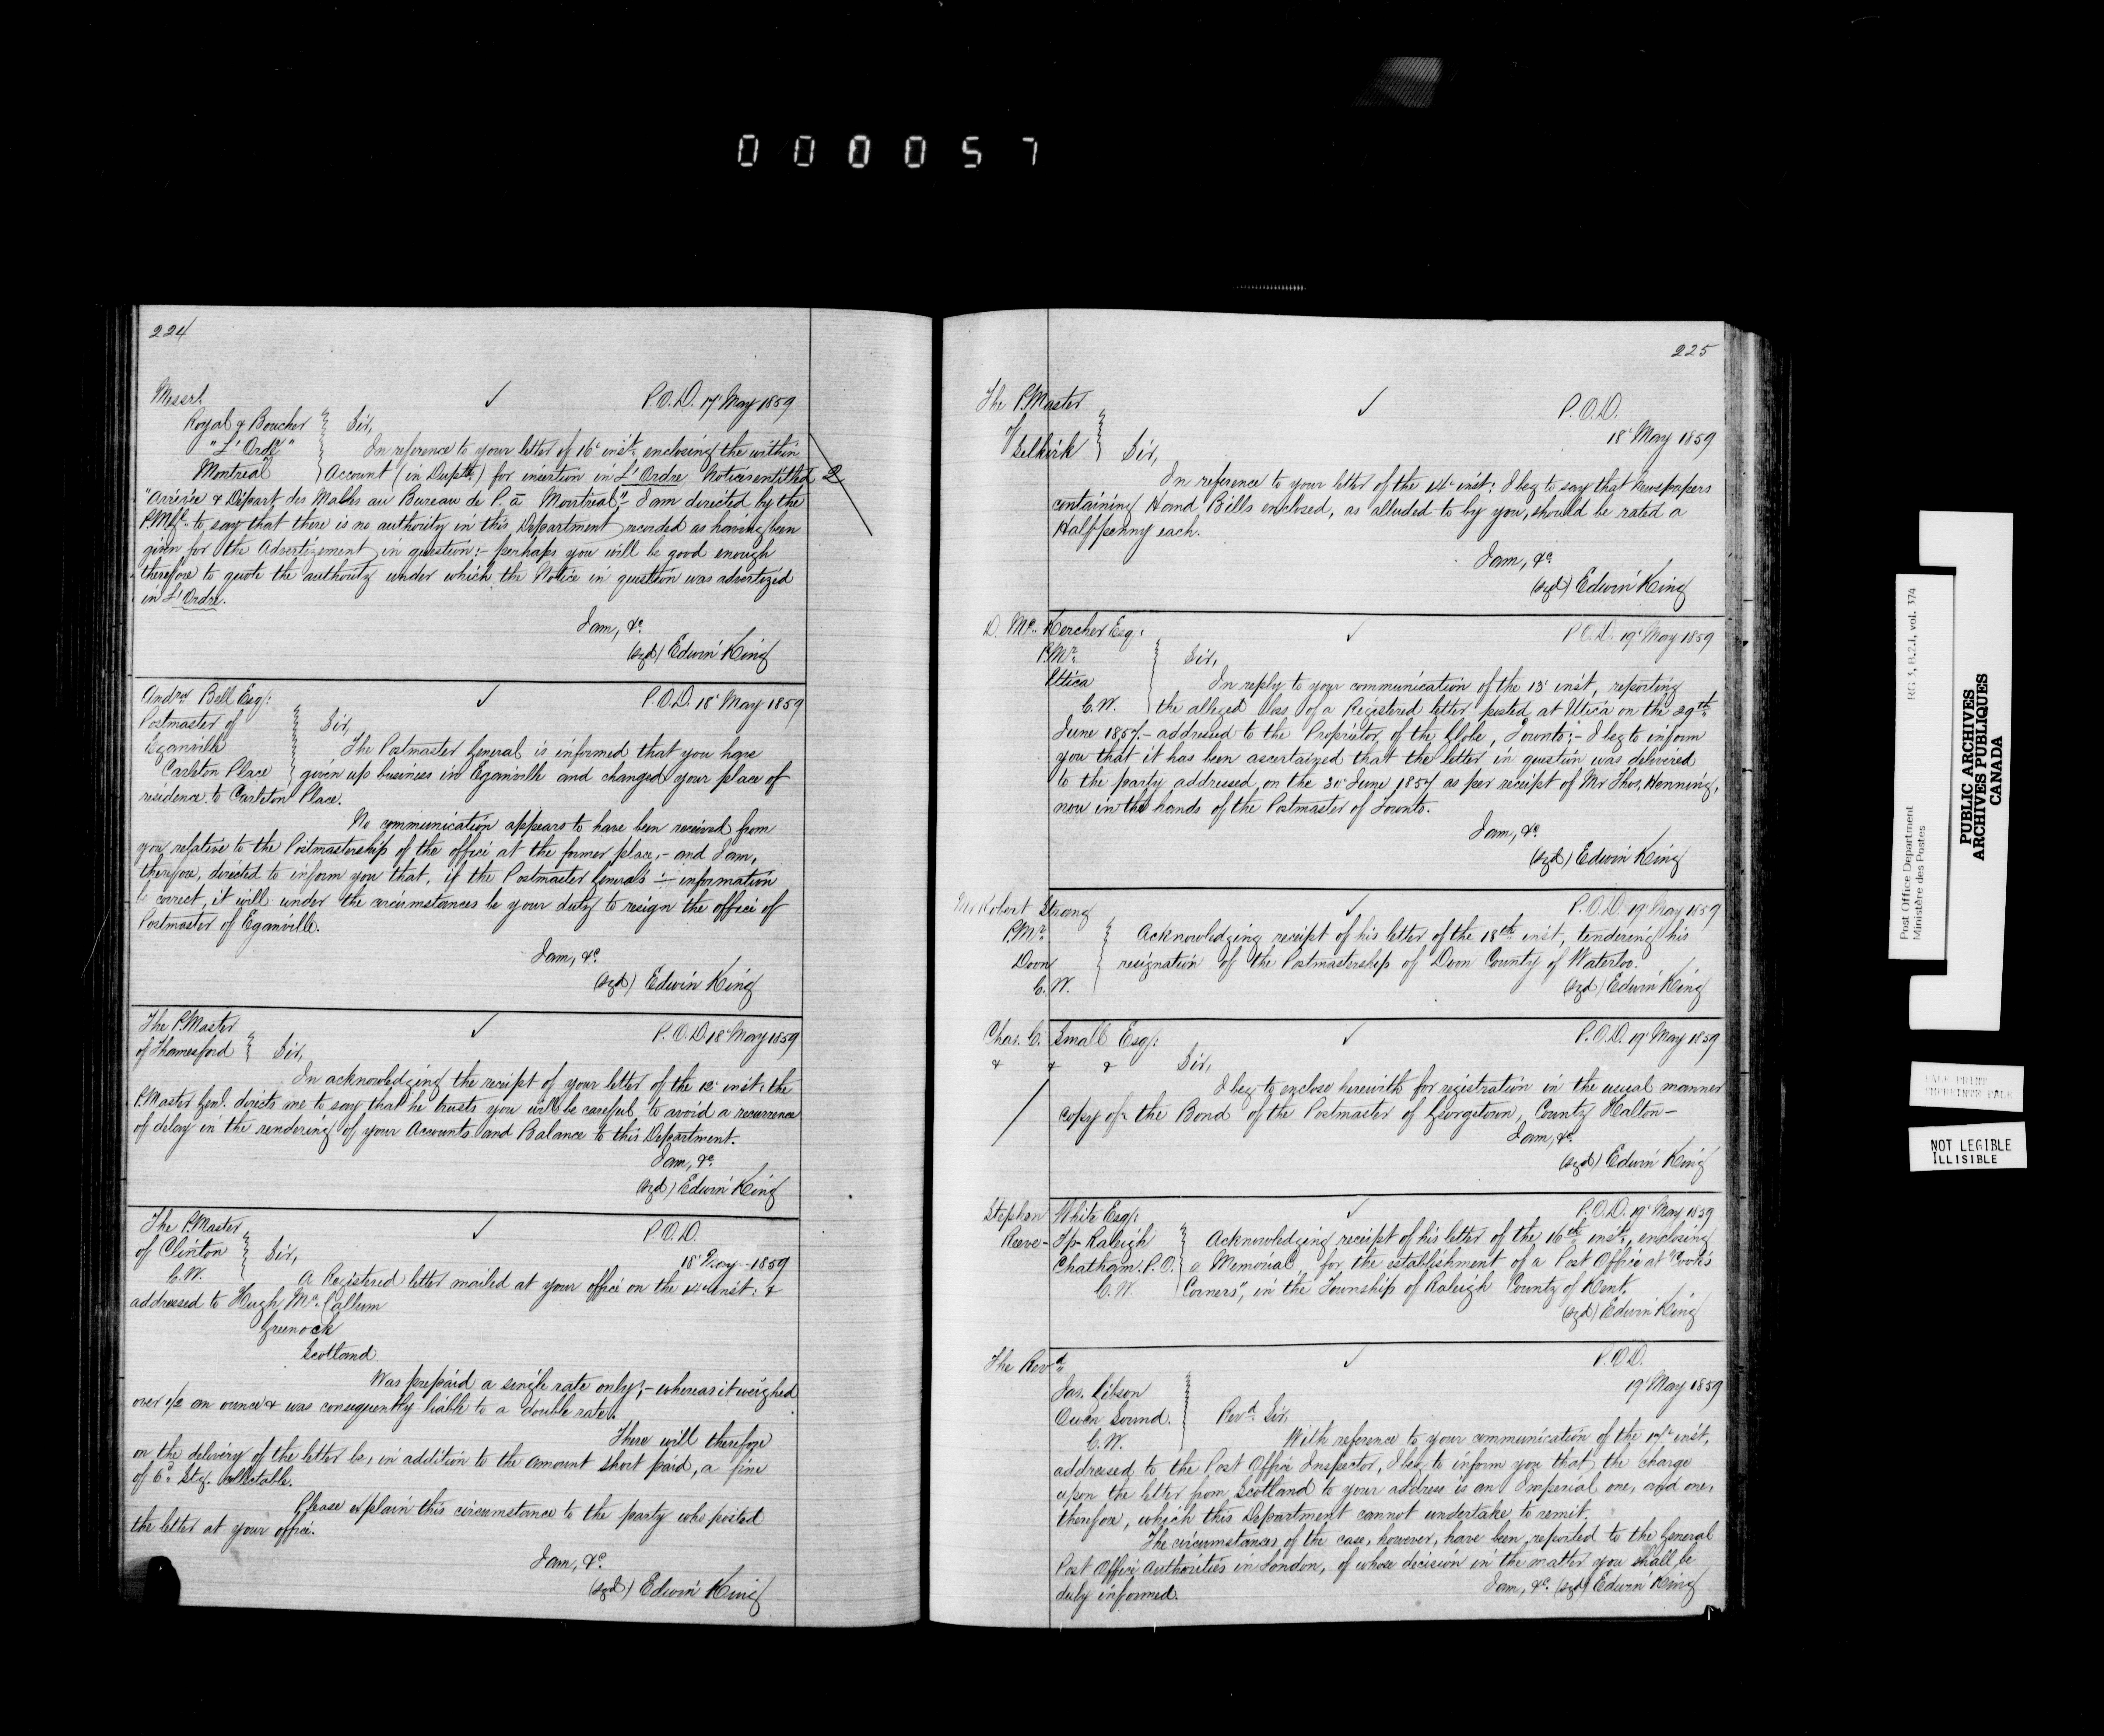 000057
224
Messrs.
P.O.D. 17 May 1859
Royal & Boucher
"L'Ordre"
Montreal
Sir,
In reference to your letter of 16 inst. enclosing the within
Account (in Duplte.) for insertion in L'Ordre Notices entitled
2
"Arrivée & Départ des Malles au Bureau de P. à Montreal", I am directed by the
P.M.Gl. to say that there is no authority in this Department recorded as having been
given for the Advertizement in question:- perhaps you will be good enough
therefore to quote the authority under which the Notice in question was advertized
in L'Ordre.
I am, &c.
(sgd) Edwin King
Andrw Bell Esq:
P.O.D. 18 May 1859
Postmaster of
Eganville
Carleton Place
Sir,
The Postmaster General is informed that you have
given up business in Eganville and changed your place of
residence to Carleton Place.
No communication appears to have been received from
you relative to the Postmastership of the office at the former place,- and I am,
therefore, directed to inform you that, if the Postmaster General's information
be correct, it will under the circumstances be your duty to resign the office of
Postmaster of Eganville.
I am, &c.
(sgd) Edwin King
The P.Master
of Thamesford
P.O.D. 18 May 1859
Sir,
In acknowledging the receipt of your letter of the 12 inst. the
P.Master Genl. directs me to say that he trusts you will be careful to avoid a recurrence
of delay in the rendering of your Accounts and Balance to this Department.
I am, &c.
(sgd) Edwin King
The P.Master
of Clinton
C.W.
P.O.D.
18 May 1859
Sir,
A Registered letter mailed at your office on the 14 inst: &
addressed to Hugh Mc.Callum
Greenock
Scotland
Was prepaid a single rate only;- whereas it weighed
over 1/2 an ounce & was consequently liable to a double rate.
There will therefore
on the delivery of the letter be, in addition to the amount short paid, a fine
of 6d. Stg. collectable.
Please explain this circumstance to the party who posted
the letter at your office.
I am, &c.
(sgd) Edwin King
225
The P.Master
of Selkirk
P.O.D.
18 May 1859
Sir,
In reference to your letter of the 14 inst: I beg to say that Newspapers
containing Hand Bills enclosed, as alluded to by you, should be rated a
Half-penny each.
I am, &c.
(sgd) Edwin King
D. Mc. Kercher Esq:
P.O.D. 19 May 1859
P.Mr.
Utica
C.W.
Sir,
In reply to your communication of the 13 inst, reporting
the alleged loss of a Registered letter posted at Utica on the 29th
June 1857.- addressed to the Proprietor of the Globe, Toronto:- I beg to inform
you that it has been ascertained that the letter in question was delivered
to the party addressed, on the 30 June 1857 as per receipt of Mr Thos. Henning,
now in the hands of the Postmaster of Toronto.
I am, &c.
(sgd) Edwin King
Mr Robert Strang
P.O.D. 19 May 1859
P.Mr.
Doon
C.W.
Acknowledging receipt of his letter of the 18th inst, tendering his
resignation of the Postmastership of Doon County of Waterloo.
(sgd) Edwin King
Chas. C. Small Esq:
P.O.D. 19 May 1859
& & &
Sir,
I beg to enclose herewith for registration in the usual manner
copy of the Bond of the Postmaster of Georgetown, County Halton-
I am, &c.
(sgd) Edwin King
Stephen White Esq:
P.O.D. 19 May 1859
Reeve- Tp Raleigh
Chatham P.O.
C.W.
Acknowledging receipt of his letter of the 16th inst, enclosing
a Memorial, for the establishment of a Post Office at "Cook's
Corners", in the Township of Raleigh County of Kent.
(sgd) Edwin King
The Revd.
P.O.D.
19 May 1859
Jas. Gibson
Owen Sound.
C.W.
Revd. Sir,
With reference to your communication of the 17 inst,
addressed to the Post Office Inspector, I beg to inform you that the charge
upon the letter from Scotland to your address is an Imperial one, and one,
therefore, which this Department cannot undertake to remit.
The circumstances of the case, however, have been reported to the General
Post Office Authorities in London, of whose decision in the matter you shall be
duly informed.
I am, &c. (sgd) Edwin King
Post Office Department
Ministère des Postes
RG 3, B.2.1, vol. 374
PUBLIC ARCHIVES
ARCHIVES PUBLIQUES
CANADA
PALE PRINT
NOT LEGIBLE
ILLISIBLE